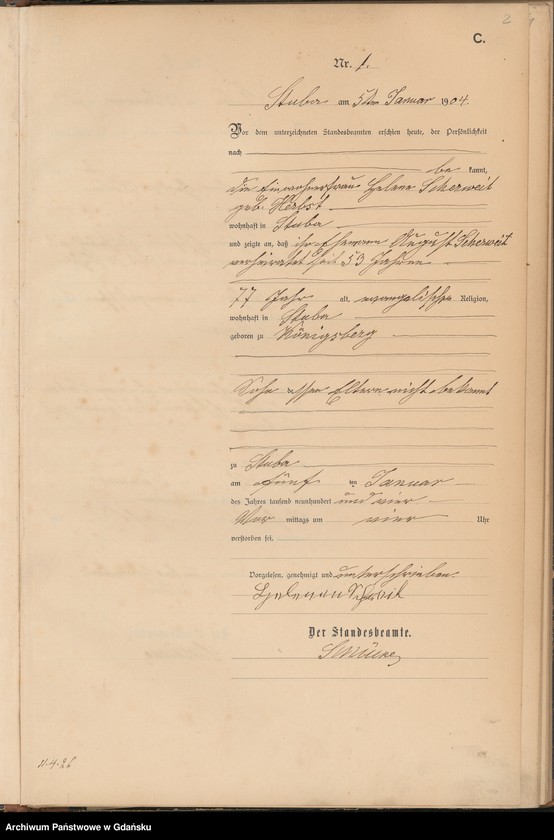 2
C.
Nr. 1.
Stuba am 5ten Januar 1904.
Vor dem unterzeichneten Standesbeamten erschien heute, der Persönlichkeit
nach
be kannt,
die Einwohnerfrau Helene Scherweit
geb. Herbst
wohnhaft in Stuba
und zeigte an, daß ihr Ehemann August Scherweit
verheiratet seit 53 Jahren
77 Jahr alt, evangelischer Religion,
wohnhaft in Stuba
geboren zu Königsberg
Sohn dessen Eltern nicht bekannt
zu Stuba
am fünf ten Januar
des Jahres tausend neunhundert und vier
Vor mittags um vier Uhr
verstorben sei.
Vorgelesen, genehmigt und unterschrieben.
Der Standesbeamte.
11.4.26
Archiwum Państwowe w Gdańsku